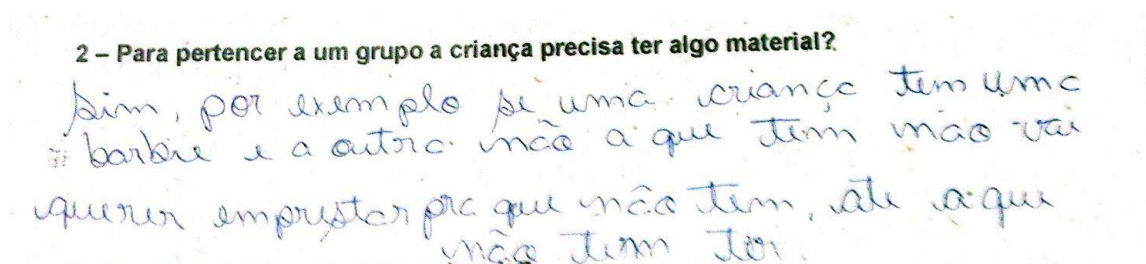 2 – Para pertencer a um grupo a criança precisa ter algo material?
Sim, por exemplo se uma criança tem uma
barbie e a outra não a que tem não vai
querer emprestar pra que não tem, ate a que
não tem ter.